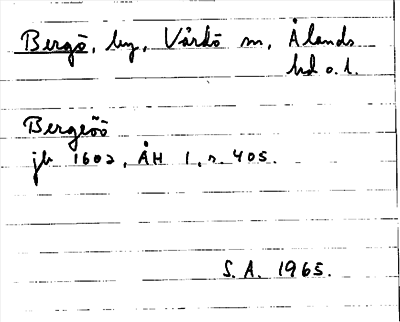 Bergö, by, Vårdö sn, Ålands
hd o. l.
Bergeöö
jb 1602, ÅH 1, s. 405.
S. A. 1965.